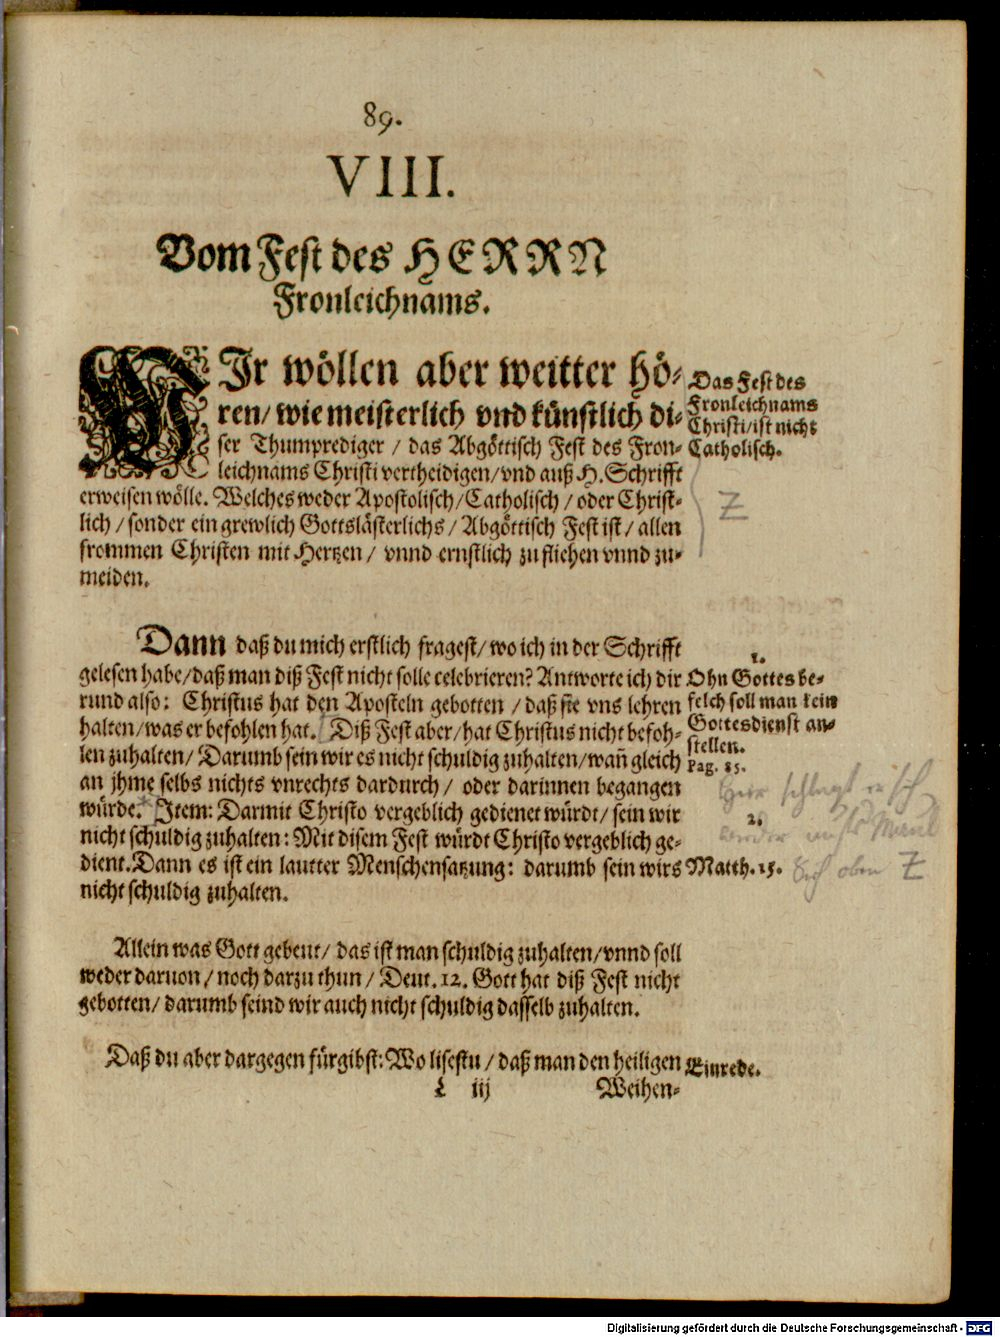 89.
VIII.
Vom Fest des HERRN
Fronleichnams.
WIr wöllen aber weitter hö-
ren/ wie meisterlich vnd künstlich di-
ser Thumprediger / das Abgöttisch Fest des Fron-
leichnams Christi vertheidigen/ vnd auß H. Schrifft
erweisen wölle. Welches weder Apostolisch/ Catholisch / oder Christ-
lich / sonder ein grewlich Gottslästerlichs/ Abgöttisch Fest ist / allen
frommen Christen mit Hertzen / vnnd ernstlich zu fliehen vnnd zu-
meiden.
Das Fest des
Fronleichnams
Christi/ ist nicht
Catholisch.
Z
Dann daß du mich erstlich fragest/ wo ich in der Schrifft
gelesen habe/ daß man diß Fest nicht solle celebrieren? Antworte ich dir
rund also: Christus hat den Aposteln gebotten / daß sie vns lehren
halten/ was er befohlen hat. Diß Fest aber/ hat Christus nicht befoh-
len zuhalten/ Darumb sein wir es nicht schuldig zuhalten/ wañ gleich
an jhme selbs nichts vnrechts dardurch/ oder darinnen begangen
würde. Item: Darmit Christo vergeblich gedienet würdt/ sein wir
nicht schuldig zuhalten: Mit disem Fest würdt Christo vergeblich ge-
dient. Dann es ist ein lautter Menschensatzung: darumb sein wirs
nicht schuldig zuhalten.
1.
Ohn Gottes be-
felch soll man kein
Gottesdienst an-
stellen.
Pag. 85.
Hier schlagt er sich
2.
Maul
Matth. 15.
Sich oben Z
Allein was Gott gebeut/ das ist man schuldig zuhalten/ vnnd soll
weder daruon / noch darzu thun / Deut. 12. Gott hat diß Fest nicht
gebotten/ darumb seind wir auch nicht schuldig dasselb zuhalten.
Daß du aber dargegen fürgibst: Wo lisestu / daß man den heiligen
Einrede.
L iij
Weihen-
Digitalisierung gefördert durch die Deutsche Forschungsgemeinschaft - DFG